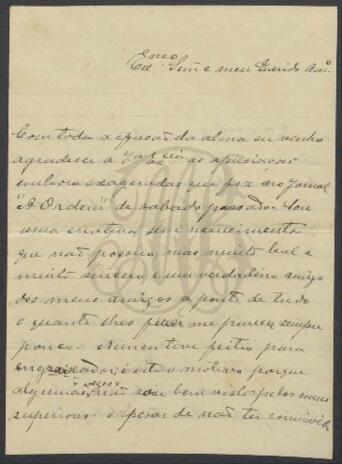 Exmo
Sñr e meu Querido Amo.
Com toda a efusão da alma eu venho
agradecer a V. Excia as apreciacões
embora exageradas que fez no jornal
"A Ordem" de sabado passado. Sou
uma creatura sem
que não possuo, mas muito leal e
muito sincero e um verdadeiro amigo
dos meus amigos a ponto de tudo
o quanto lhes fazer me parece sempre
pouco. Nunca tive feitio para
engraixador, é este o motivo porque
algumas vezes não sou bem visto pelos meus
superiores. Apesar de não ter convivido